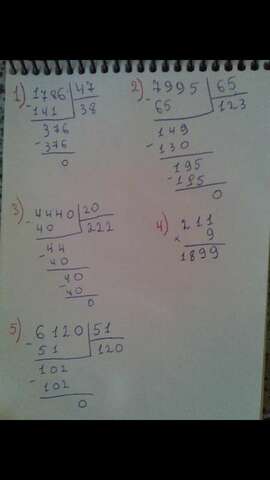 1) 1786 | 47
- 141 38
376
- 376
0
2) 7995 | 65
- 65 123
149
- 130
195
- 195
0
3) 4440 | 20
- 40 222
44
- 40
40
- 40
0
4) 211
× 9
1899
5) 6120 | 51
- 51 120
102
- 102
0